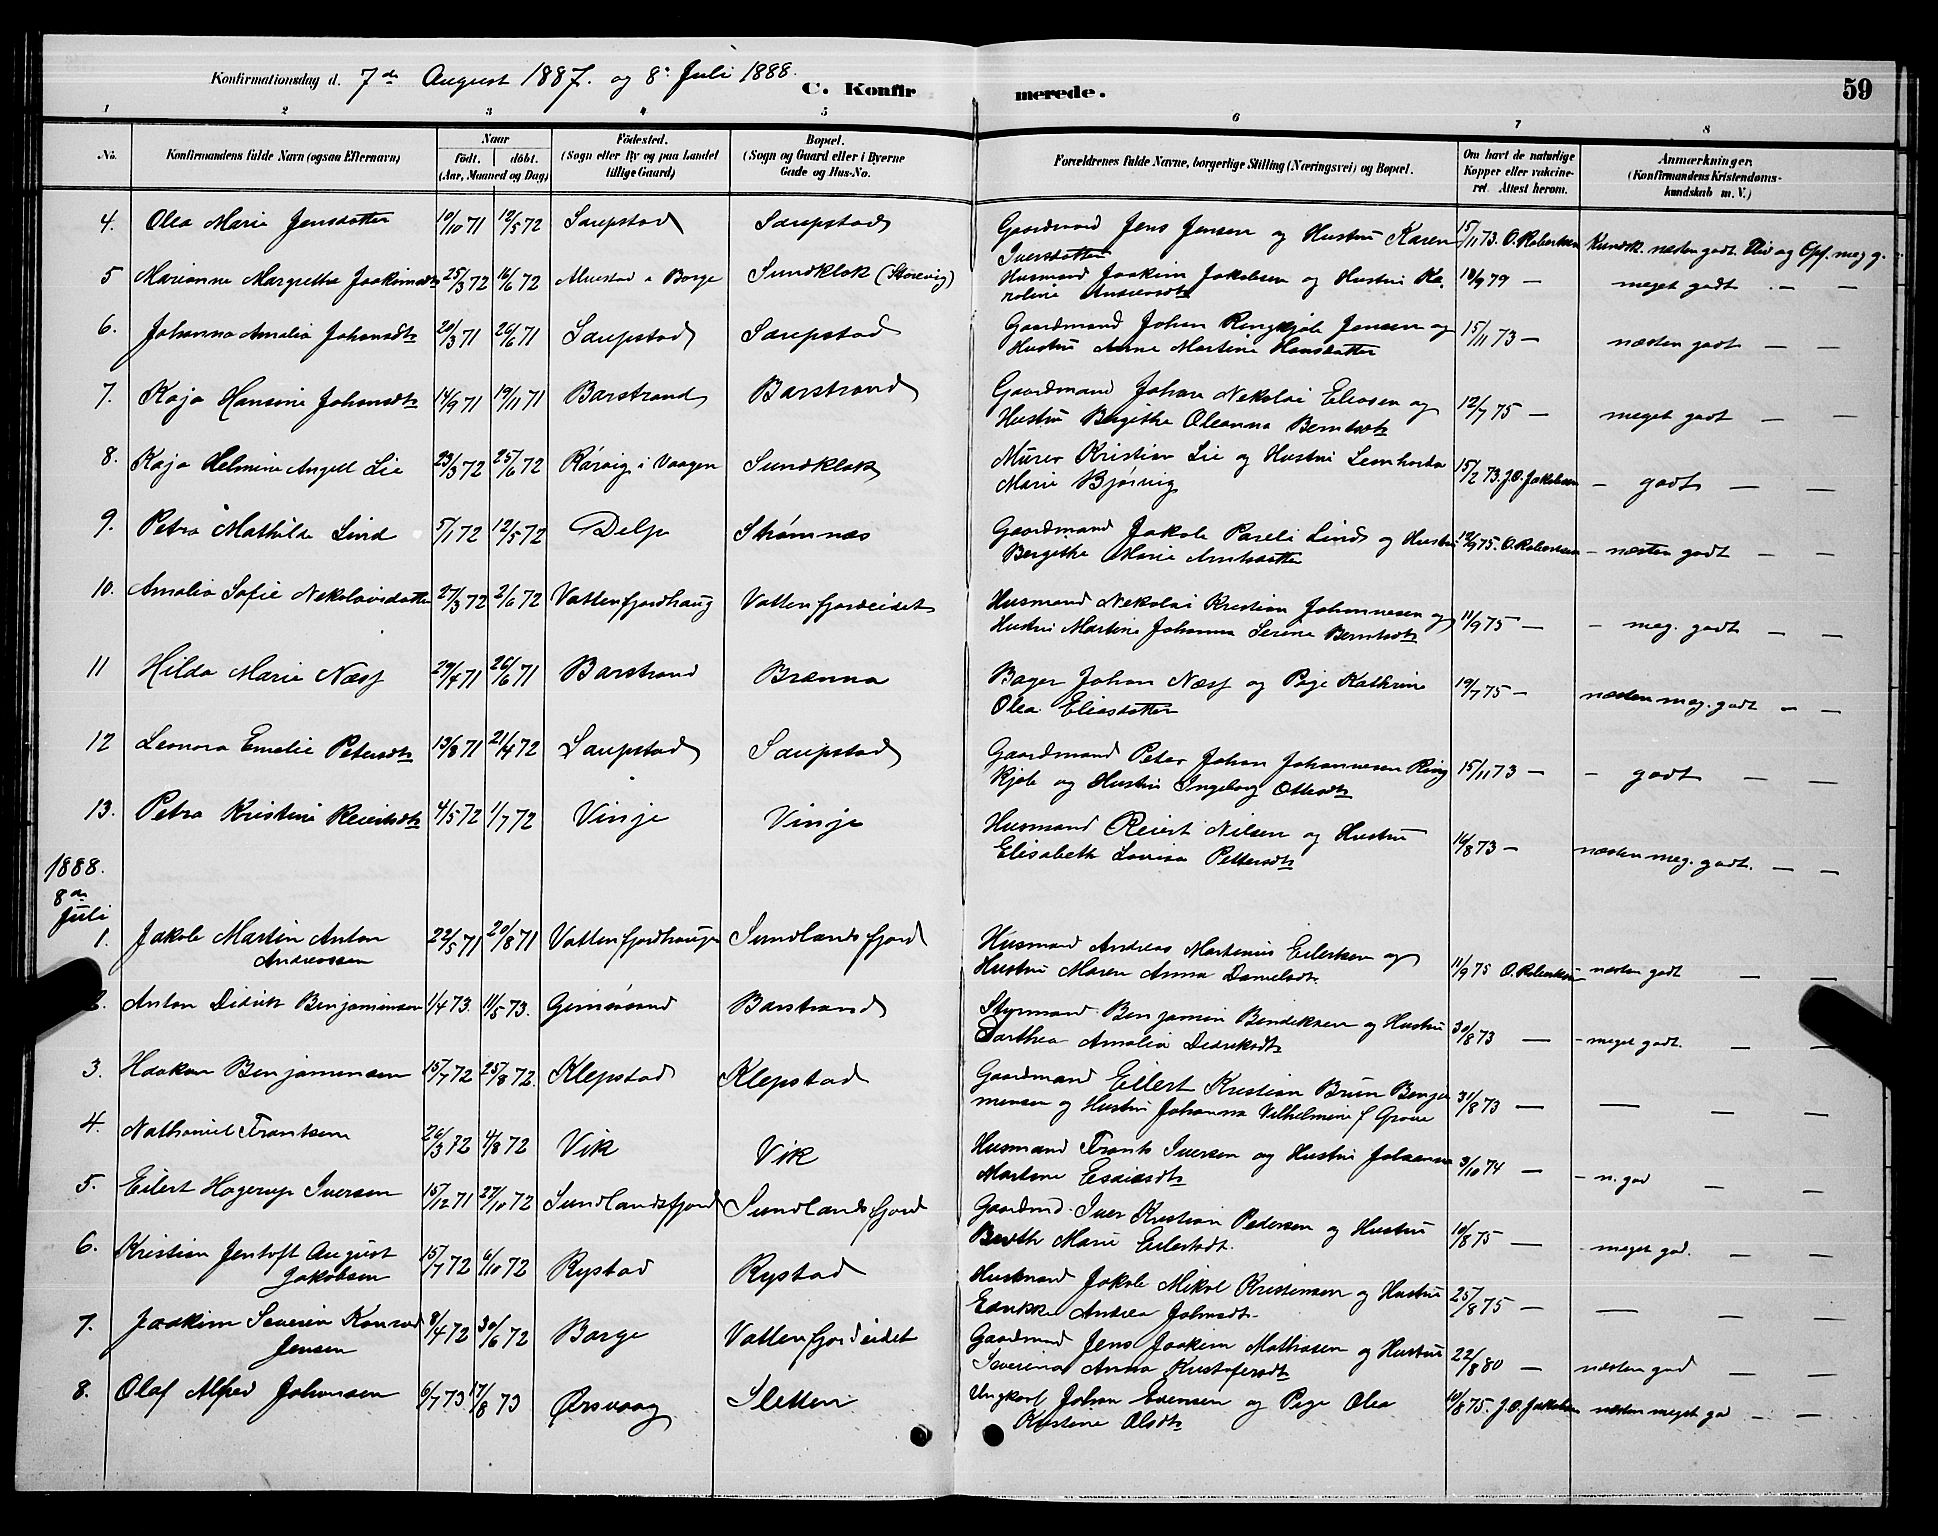 Konfirmationsdag d. 7de August 1887. og 8. Juli 1888.
C. Konfirmerede.
59
1 2 3 4 5 6 7 8
No.
Konfirmandens fulde Navn (ogsaa Efternavn)
Naar
født. | døbt.
(Aar, Maaned og Dag)
Fødested.
(Sogn eller By og paa Landet
tillige Gaard)
Bopæl.
(Sogn og Gaard eller i Byerne
Gade og Hus-No.
Forældrenes fulde Navne, borgerlige Stilling (Næringsvei) og Bopæl.
Om havt de naturlige
Kopper eller vakcine-
ret. Attest herom.
Anmærkninger.
(Konfirmandens Kristendoms-
kundskab m. V.)
4. Olea Marie Jensdatter 10/10 71 12/5 72 Saupstad Saupstad Gaardmand Jens Jensen og Hustru Karen 15/11 73. O. Robertsen Kundsk. næsten godt. Fliv og Opf. meg g.
Iversdatter
5 Marianne Margrethe Joakimsdtr 25/3 72 16/6 72 i Borge Sundklak (Storevig) Husmand Joakim Jakobsen og Hustru Ka- 18/9 79 — meget godt — —
roline Andreasdtr
6. Johanna Amalia Johansdtr 20/3 71 26/6 71 Saupstad Saupstad Gaardmand Johan Ringkjøb Jensen og 15/11 73 — næsten godt — —
Hustru Anne Martine Hansdatter
7. Kaja Hansine Johansdtr 14/9 71 19/11 71 Barstrand Barstrand Gaardmand Johan Nekolai Eliasen og 12/7 75 — meget godt — —
Hustru Bergithe Oleanna Berntsdtr
8. Kaja Helmine Angell Lie 23/3 72 25/6 72 Rørvig i Vaagen Sundklak Murer Kristian Lie og Hustru Leonharda 15/2 73. J.O. Jakobsen — godt — —
Marie Bjørvig
9. Petra Mathilde Lind 5/1 72 12/5 72 Delp Strømnæs Gaardmand Jakob Pareli Lind og Hustru 12/9 75. O. Robertsen — næsten godt — —
Bergithe Marie Arntsdatter
10. Amalia Sofie Nekolaisdatter 27/3 72 2/6 72 Vattenfjordhaug Vattenfjordeidet Husmand Nekolai Kristian Johannesen og 11/9 75 — — meg. godt — —
Hustru Martine Johanna Serine Berntsdtr
11 Hilda Marie Næss 29/4 71 26/6 71 Barstrand Brænna Bager Johan Næss og Pige Kathrine 19/7 75 — næsten meg. godt — —
Olea Eliasdatter
12 Leonora Emelie Petersdtr 13/8 71 21/4 72 Saupstad Saupstad Gaardmand Peter Johan Johannesen Ring 15/11 73 — — godt — —
kjøb og Hustru Ingeborg Ottesdtr
13. Petra Kristine Reiertsdtr 4/5 72 1/7 72 Vinje Vinje Husmand Reiert Nilsen og Hustru 16/8 73 — næsten meg. godt. — —
Elisabeth Lovisa Pettersdtr
1888.
8de
Juli
1. Jakob Martin Anton 22/5 71 20/8 71 Vattenfjordhaugen Sundlandsfjord Husmand Andreas Martinus Eilertsen og 11/9 75 O. Robertsen — næsten godt — —
Andreassen Hustru Maren Anna Danielsdtr.
2. Anton Didrik Benjaminsen 1/4 73. 11/5 73. Gimsøsand Barstrand Styrmand Benjamin Bendiksen og Hustru 30/8 73 — — meget godt. — —
Dorthea Amalia Didriksdtr
3. Haakon Benjaminsen 15/7 72 25/8 72. Klepstad Klepstad Gaardmand Eilert Kristian Brun Benja 31/8 73 — — — —
minsen og Hustru Johanna Vilhelmine f Grove
4. Nathaniel Frantsen 26/3 72 4/8 72 Vik Vik Husmand Frants Iversen og Hustru Johanna 3/10 74 — — n. god — —
Martine Esaiasdtr
5. Eilert Hagerup Iversen 15/12 71 27/10 72 Sundlandsfjord Sundlandsfjord Gaardmd. Iver Kristian Pedersen og Hustru 10/8 75 — — meget god. — —
Berith Marie Eilertsdt.
6. Kristian Jentoft August 15/7 72 6/10 72 Rystad Rystad Husmand Jakob Mikal Kristensen og Hustru 25/8 75 — — — —
Jakobsen Andrea Johnsdtr.
7. Joakim Severin Konrad 8/4 72 30/6 72 Borge Vattenfjordeidet Gaardmand Jens Joakim Mathiasen og Hustru 22/8 80 — næsten god — —
Jensen Severina Anna Kristofersdtr
8. Olaf Alfred Johansen 6/7 73 17/8 73 Ørsvaag Sletten Ungkarl Johan Evensen og Pige Olea 10/8 75. J.O. Jakobsen næsten meget god — —
Kristine Olsdtr